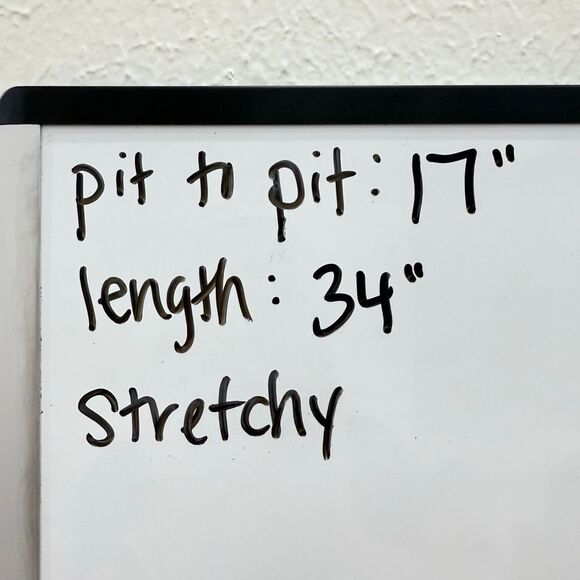 pit to pit: 17"
length: 34"
Stretchy